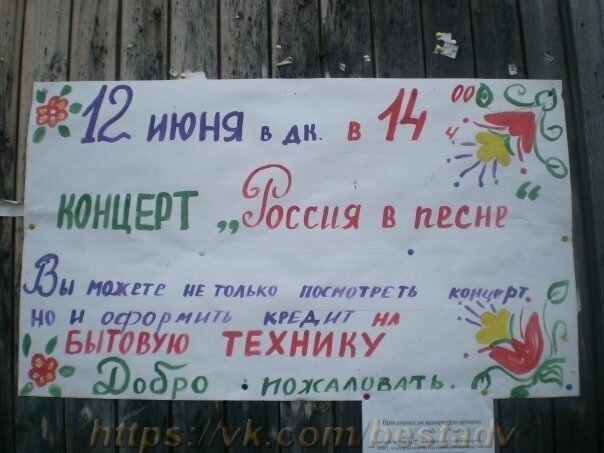 12 июня в дк. в 14 00 ч
КОНЦЕРТ „Россия в песне“
Вы можете не только посмотреть концерт.
но и оформить кредит на
БЫТОВУЮ ТЕХНИКУ
Добро пожаловать.
Приглашает на ярмарку
https://vk.com/bestadv